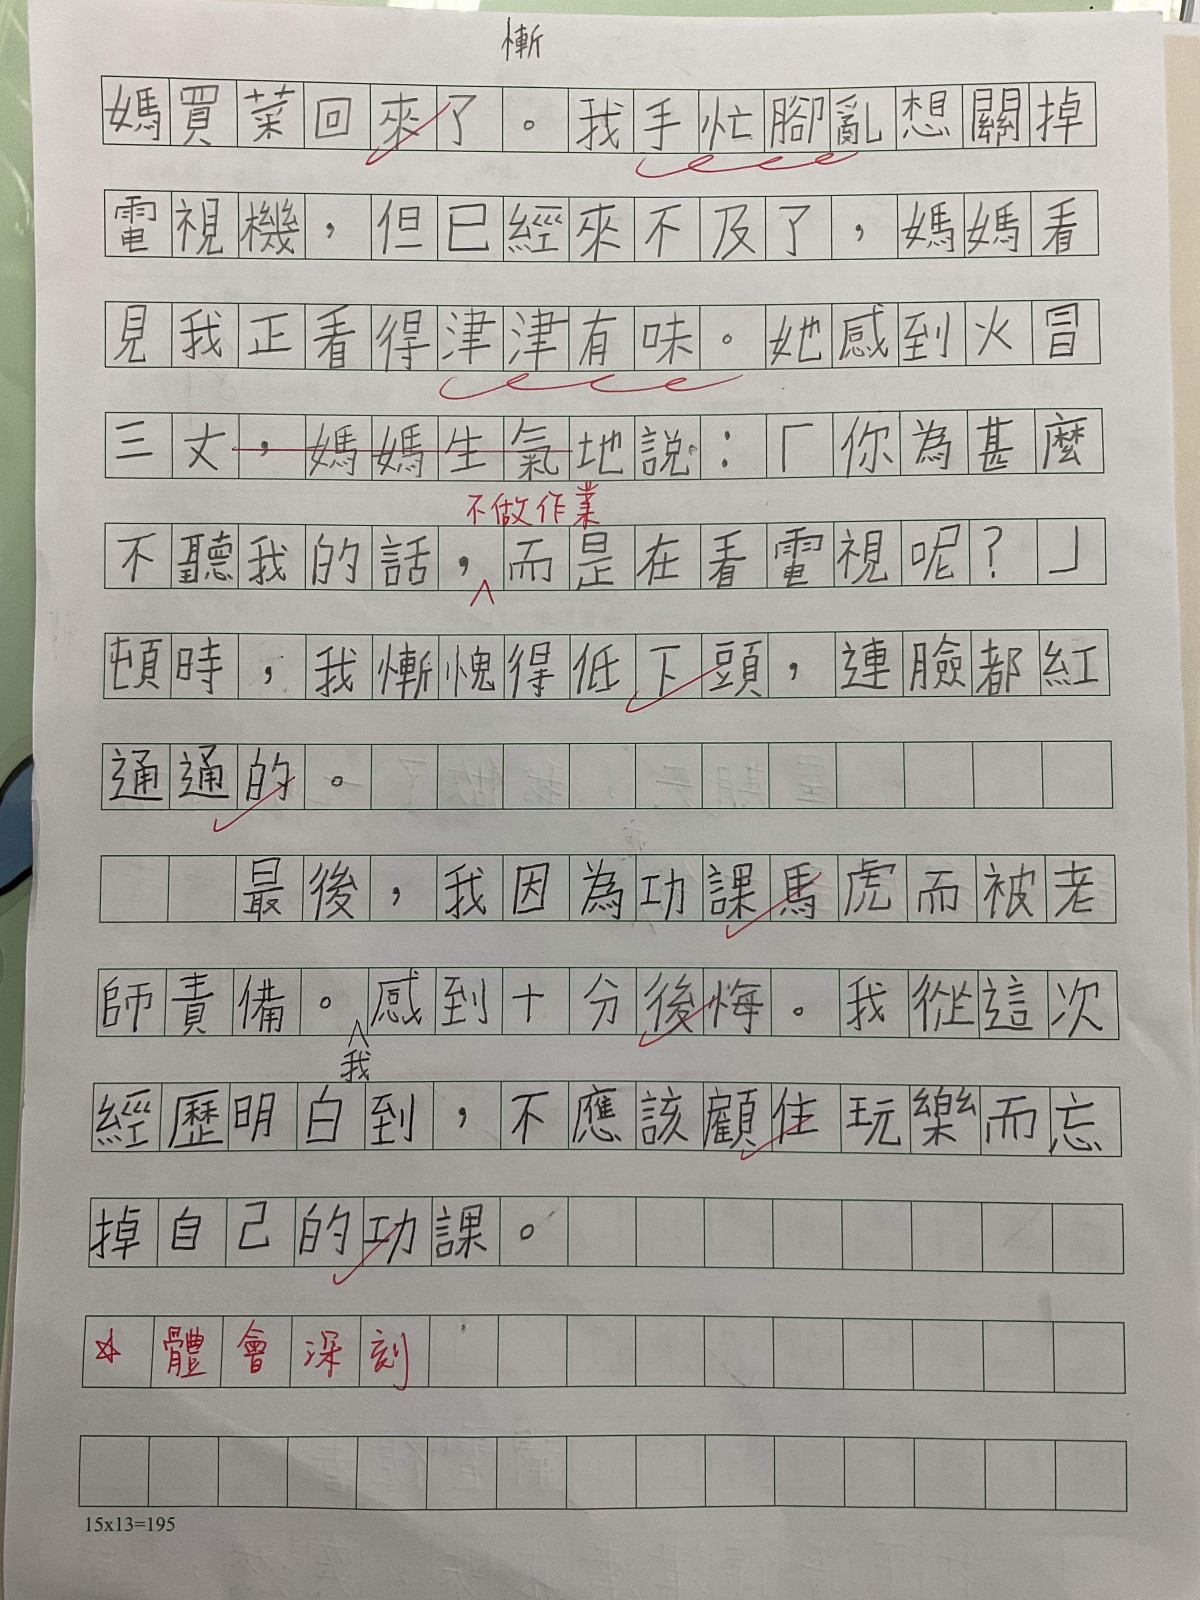 慚
媽買菜回來了。我手忙腳亂想關掉
電視機,但已經來不及了,媽媽看
見我正看得津津有味。她感到火冒
三丈,媽媽生氣地說:「你為甚麼
不做作業
不聽我的話,而是在看電視呢?」
頓時,我慚愧得低下頭,連臉都紅
通通的。
最後,我因為功課馬虎而被老
師責備。感到十分後悔。我從這次
我
經歷明白到,不應該顧住玩樂而忘
掉自己的功課。
☆體會深刻
15x13=195